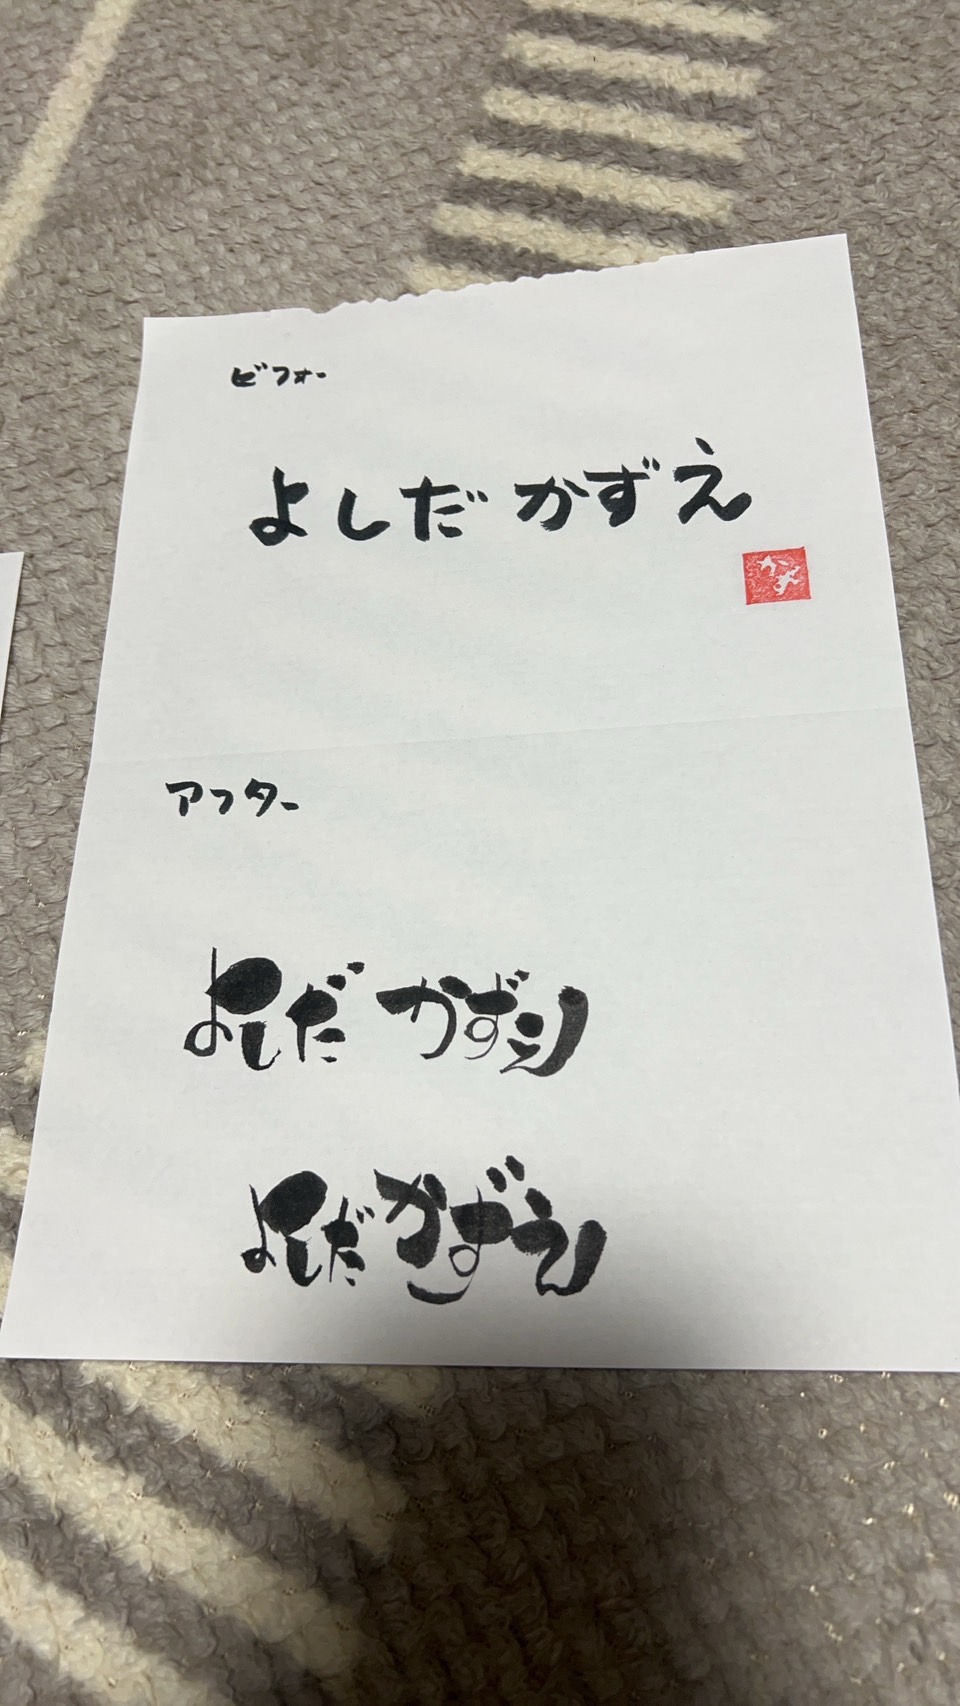 ビフォー
よしだ かずえ
アフター
よしだ かずえ
よしだ かずえ